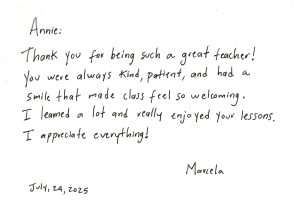 Annie:
Thank you for being such a great teacher!
You were always kind, patient, and had a
smile that made class feel so welcoming.
I learned a lot and really enjoyed your lessons.
I appreciate everything!
Marcela
July, 24, 2025